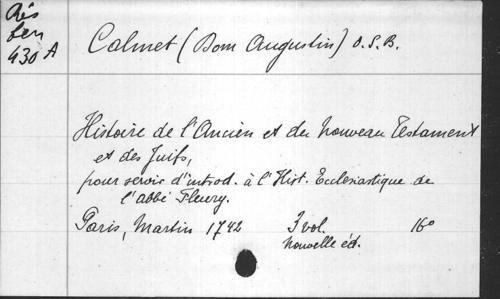 Rés
Calmet (Dom Augustin) O.S.B.
430 A
Histoire de l'Ancien et du Nouveau Testament
et des Juifs,
pour servir d'introd. à l'Hist. Ecclesiastique de
l'abbé Fleury.
Paris, Martin 1742 3 vol. 16°
Nouvelle éd.